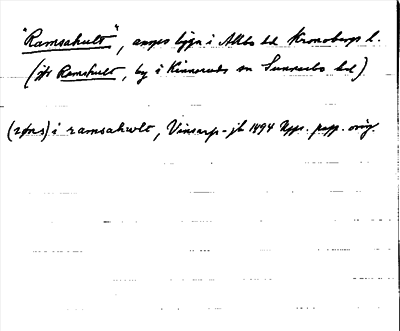 "Ramsahult", anges ligga i Allbo hd Kronobergs l.
(jfr Ramshult, by i Kinnareds sn Sunnerbo hd)
(røns) i ramsahult, Vinsarp-jb 1494 Upps. papp. orig.